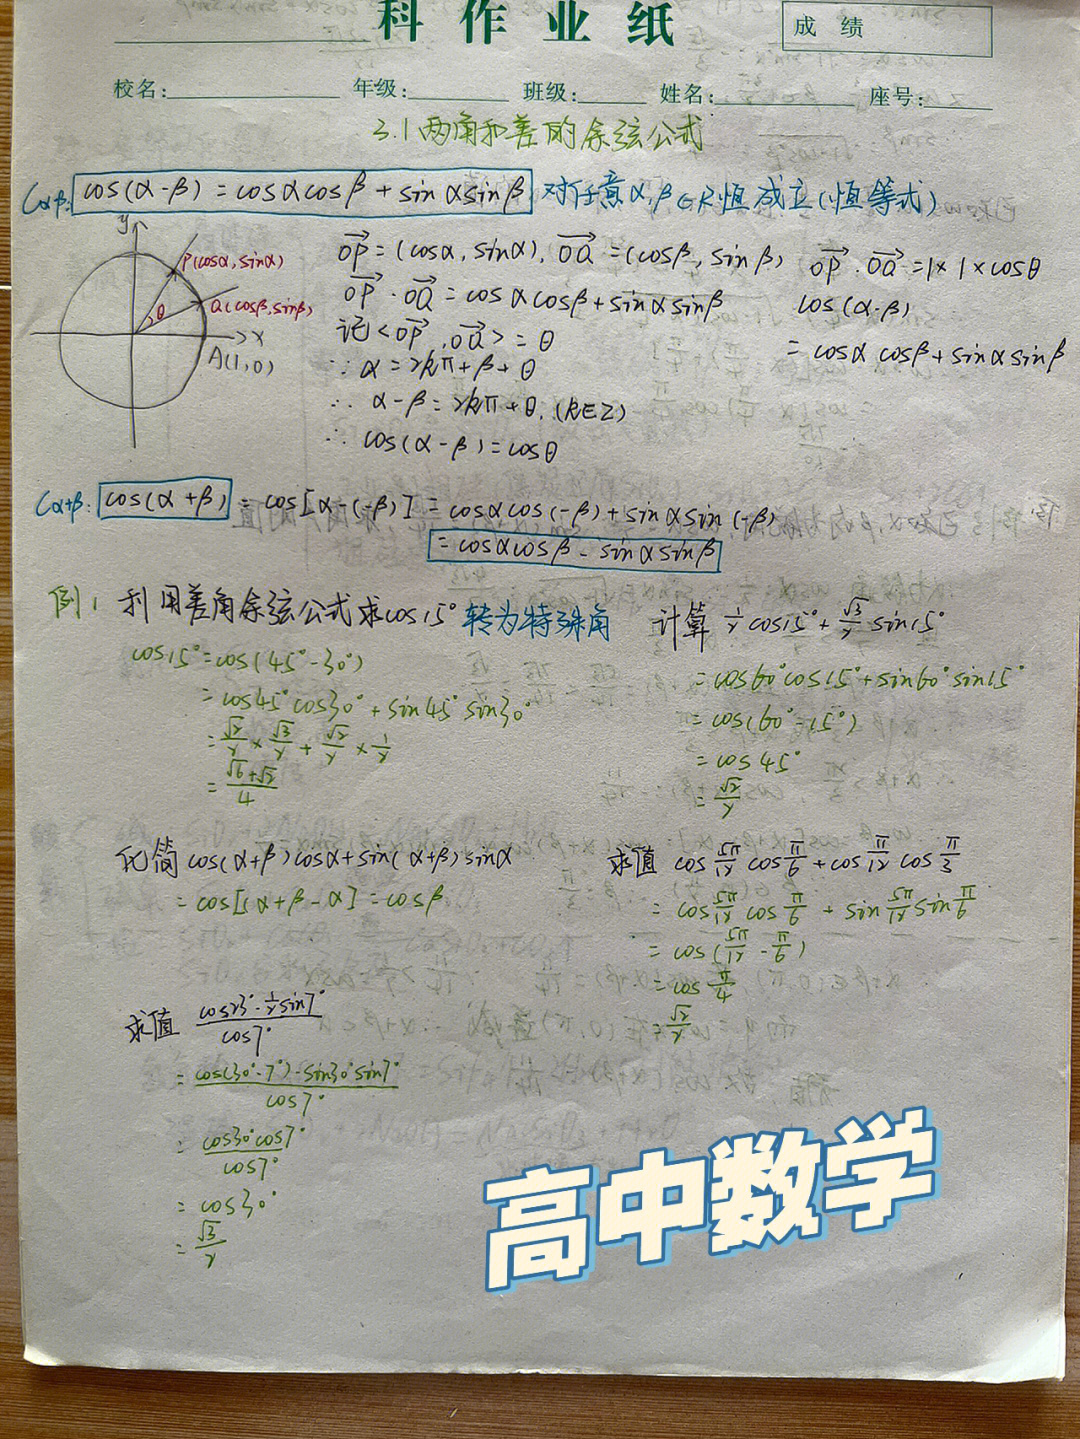 科 作 业 纸
成 绩
校名: 年级: 班级: 姓名: 座号:
3.1两角和差的余弦公式
Cα-β: cos(α-β) = cosαcosβ + sinαsinβ 对任意α,β∈R恒成立(恒等式)
y
P(cosα,sinα)
Q(cosβ,sinβ)
θ
x
A(1,0)
OP→ = (cosα, sinα), OQ→ = (cosβ, sinβ)
OP→ · OQ→ = cosαcosβ + sinαsinβ
记<OP→, OQ→> = θ
∴ α = 2kπ + β + θ
∴ α-β = 2kπ + θ, (k∈Z)
∴ cos(α-β) = cosθ
OP→ · OQ→ = 1×1×cosθ
cos(α-β)
= cosα cosβ + sinα sinβ
Cα+β: cos(α+β) = cos[α-(-β)] = cosαcos(-β) + sinαsin(-β)
= cosαcosβ - sinαsinβ
例1 利用差角余弦公式求cos15° 转为特殊角
cos15° = cos(45°-30°)
= cos45°cos30° + sin45°sin30°
= √2/2 × √3/2 + √2/2 × 1/2
= (√6+√2)/4
计算 1/2 cos15° + √3/2 sin15°
= cos60°cos15° + sin60°sin15°
= cos(60°-15°)
= cos45°
= √2/2
化简 cos(α+β)cosα + sin(α+β)sinα
= cos[(α+β-α] = cosβ
求值 cos 5π/12 cos π/6 + cos π/12 cos π/3
= cos 5π/12 cos π/6 + sin 5π/12 sin π/6
= cos(5π/12 - π/6)
= cos π/4
= √2/2
求值 (cos23° - 1/2 sin7°)/cos7°
= (cos(30°-7°) - sin30°sin7°)/cos7°
= cos30°cos7°/cos7°
= cos30°
= √3/2
高中数学